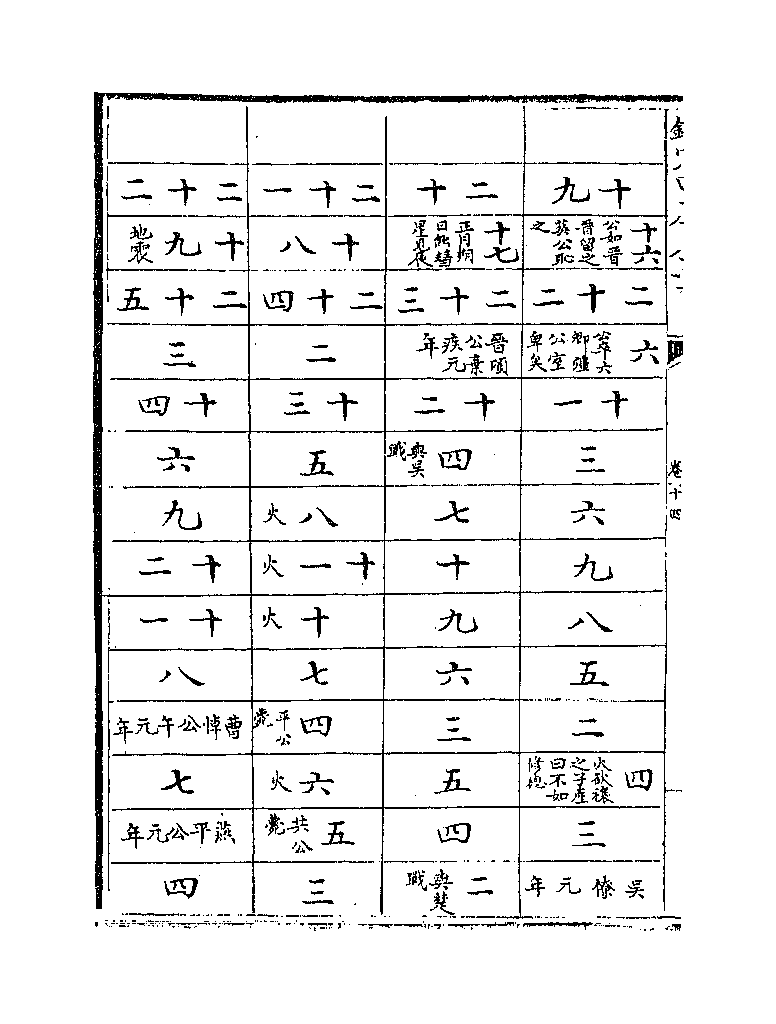 卷十四
十九
十六 公如晉晉留之葬公恥之
二十二
六 公卒六卿彊公室卑矣
十一
三
六
九
八
五
二
四 火欲禳之子產曰不如修德
三
吳僚元年
二十
十七 正月朔日蝕彗星見辰
二十三
晉頃公棄疾元年
十二
四 與吳戰
七
十
九
六
三
五
四
二 與楚戰
二十一
十八
二十四
二
十三
五
八 火
十一 火
十 火
七
四 平公薨
六 火
五 共公薨
三
二十二
十九 地震
二十五
三
十四
六
九
十二
十一
八
曹悼公午元年
七
燕平公元年
四